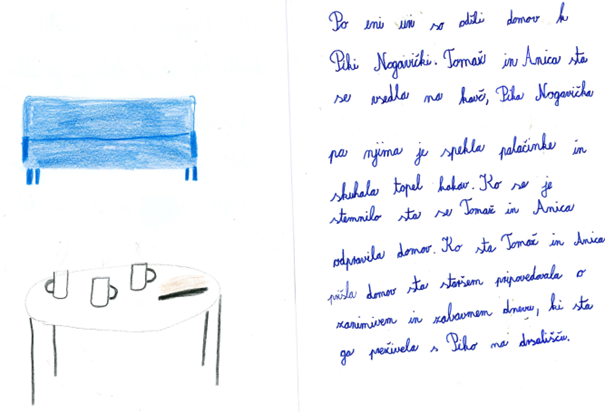 Po eni uri so odšli domov k
Piki Nogavički. Tomaž in Anica sta
se vsedla na kavč, Pika Nogavička
pa njima je spekla palačinke in
skuhala topel kakav. Ko se je
stemnilo sta se Tomaž in Anica
odpravila domov. Ko sta Tomaž in Anica
prišla domov sta staršem pripovedovala o
zanimivem in zabavnem dnevu, ki sta
ga preživela s Piko na drsališču.